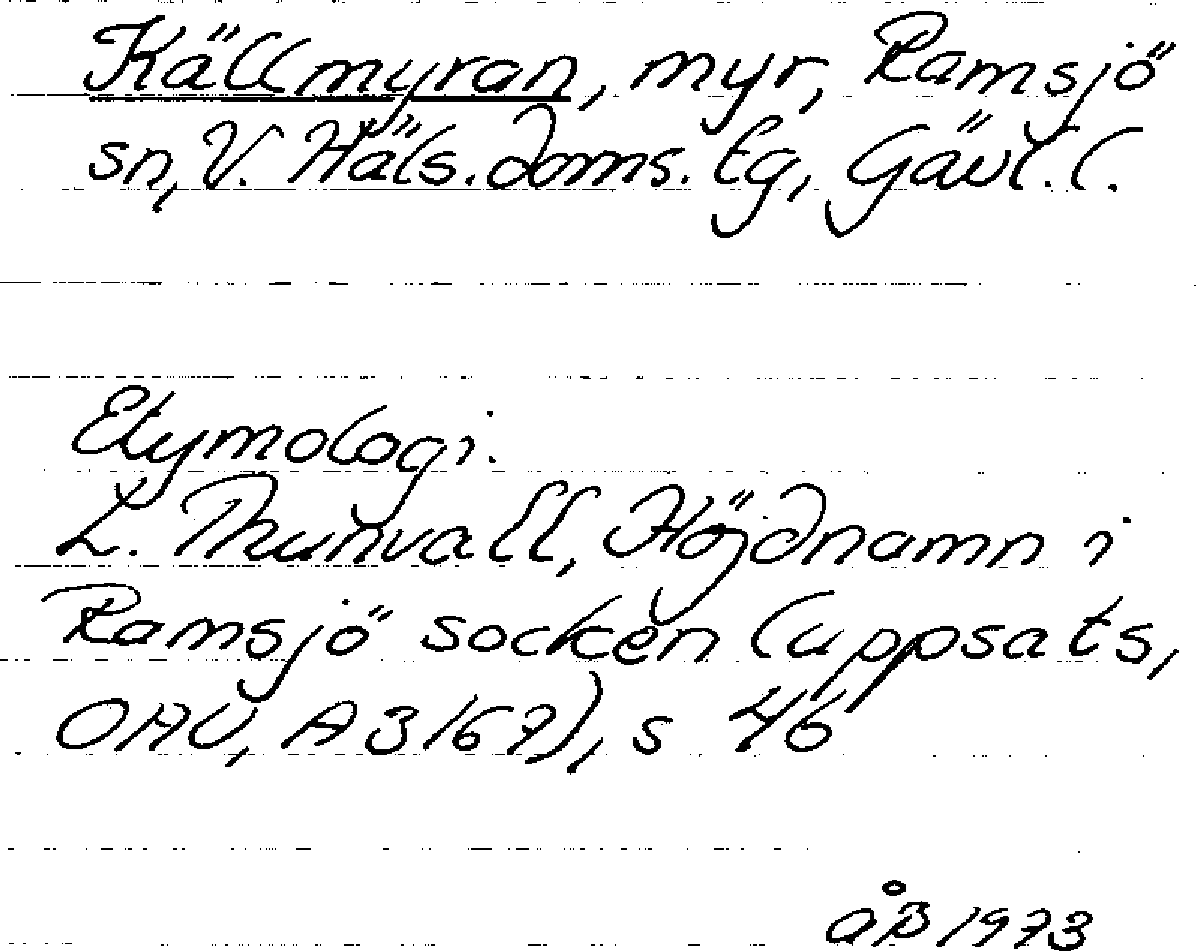 Källmyran, myr, Ramsjö
sn, V. Häls. doms. tg, Gävl. l.
Etymologi.
L. Thunvall, Höjdnamn i
Ramsjö socken (uppsats,
OAU, A 3167), s 46
ÅB 1973